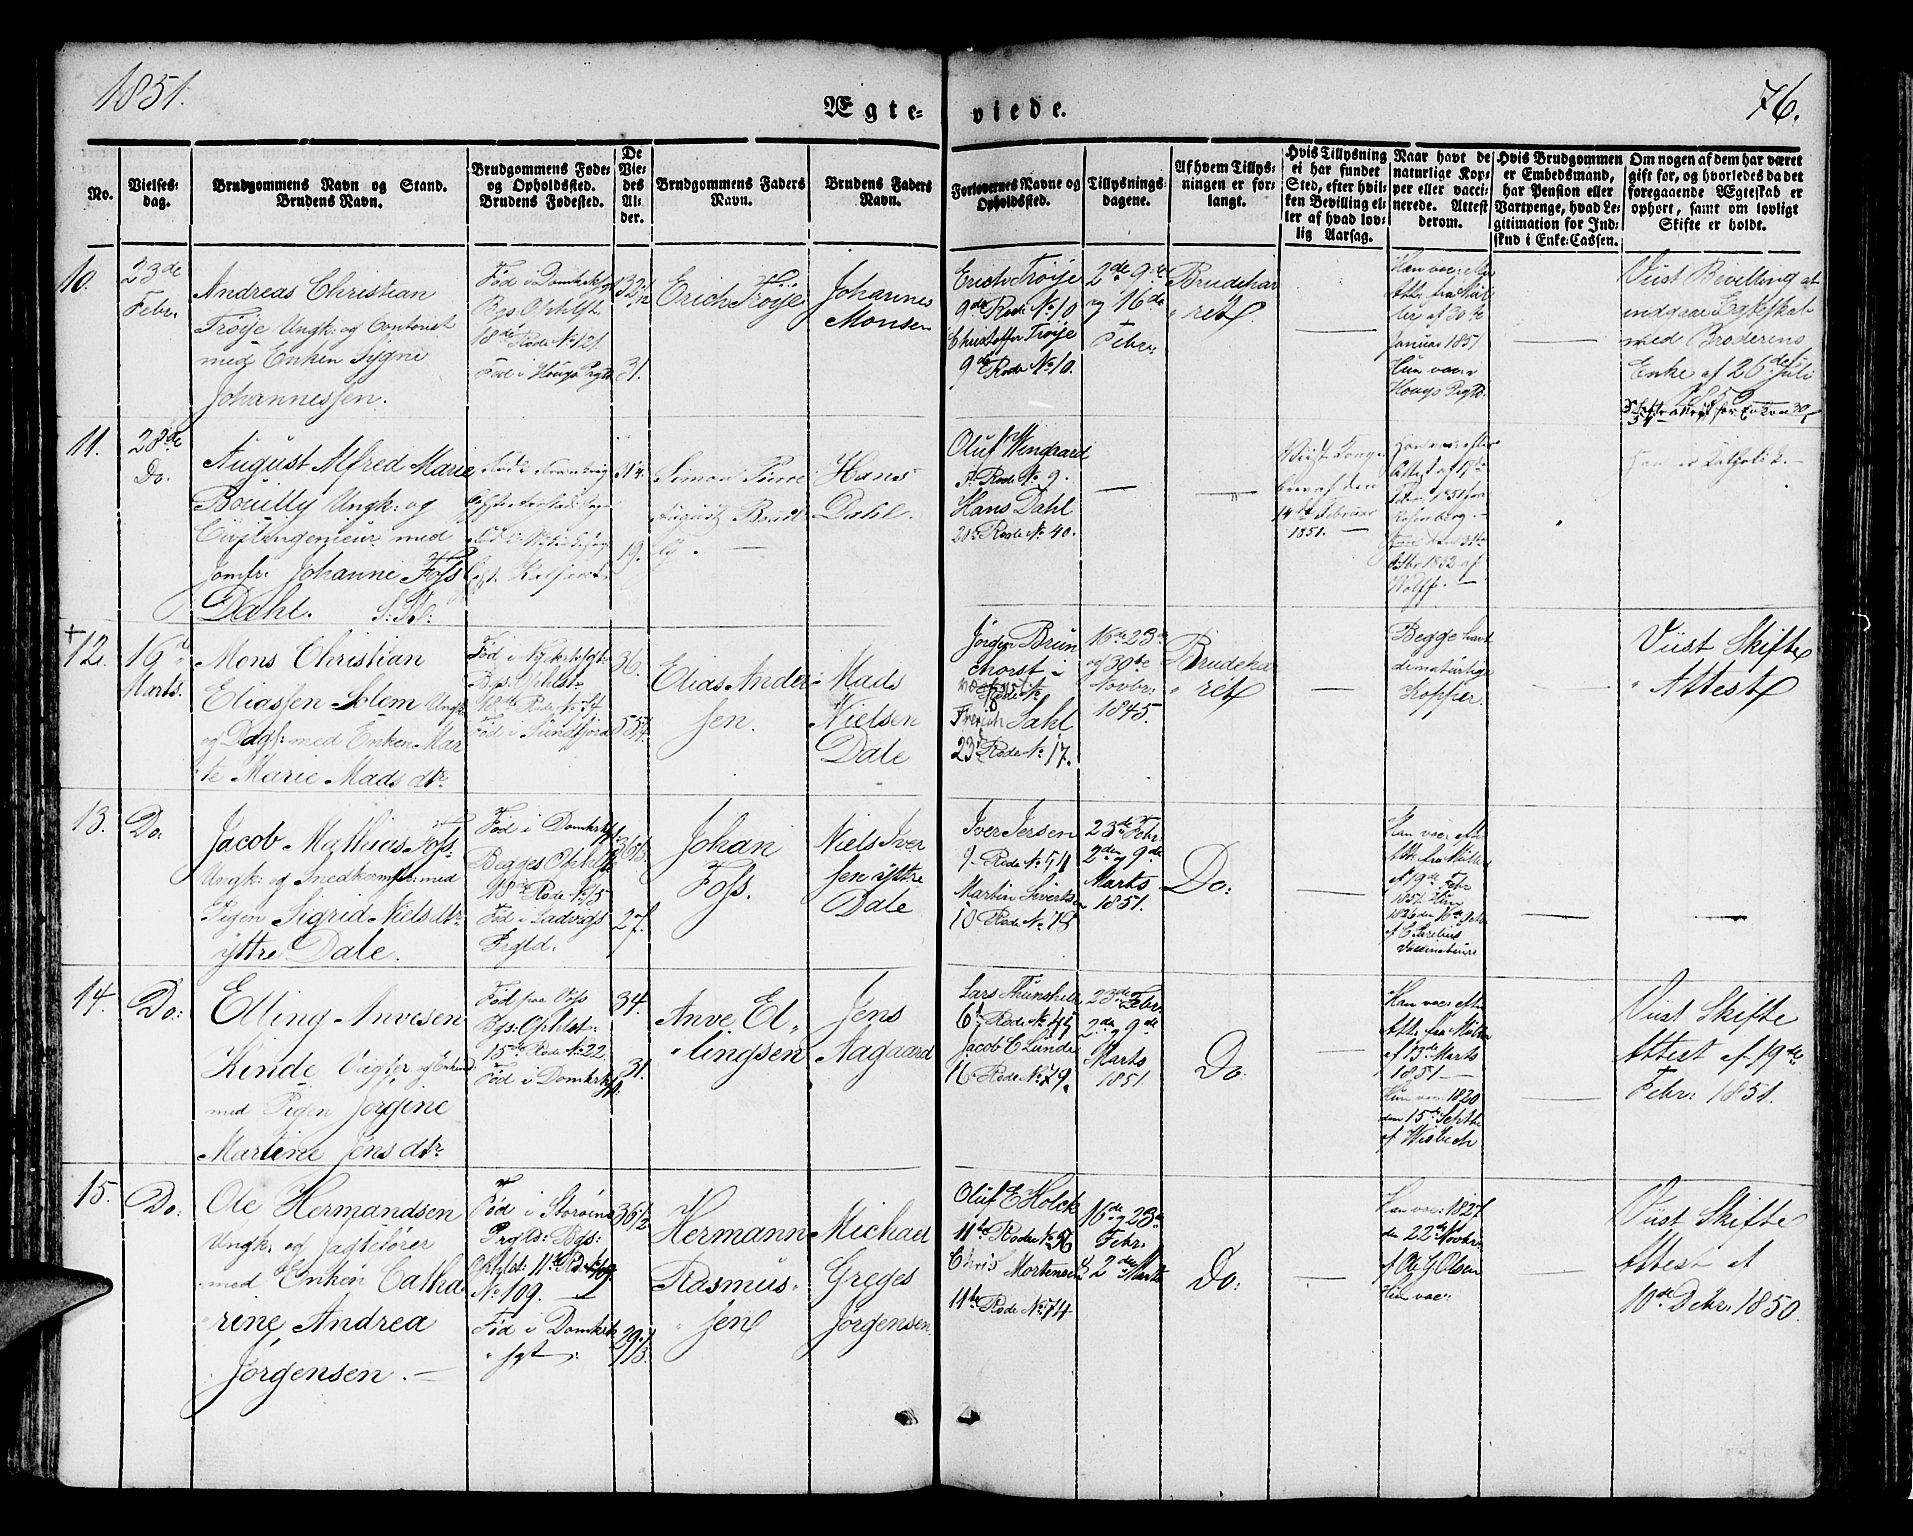 1851.
Ægte-
viede.
76.
No.
Vielses-
dag.
Brudgommens Navn og Stand.
Brudens Navn.
Brudgommens Føde-
og Opholdssted.
Brudens Fødested.
De
Vie-
des
Al-
der.
Brudgommens Faders
Navn.
Brudens Faders
Navn.
Forlovernes Navne og
Opholdssted.
Tillysnings-
dagene.
Af hvem Tillys-
ningen er for-
langt.
Hvis Tillysning
ei har fundet
Sted, efter hvil-
ken Bevilling el-
ler af hvad lov-
lig Aarsag.
Naar havt de
naturlige Kop-
per eller vacci-
nerede. Attest
derom.
Hvis Brudgommen
er Embedsmand,
har Pension eller
Vartpenge, hvad Le-
gitimation for Ind-
skud i Enke-Cassen.
Om nogen af dem har været
gift før, og hvorledes da det
foregaaende Ægteskab er
ophørt, samt om lovligt
Skifte er holdt.
10.
23de
Febr.
Andreas Christian
Trøje Ungk: og Contorist
med Enken Sygni
Johannessen.
Bgs. Ophlst
18de Rode No 121
Fød i Hougs Prgld
31.
Erich Trøije
Johannes
Monsen
Erich Trøije
9de Rode No 10
Christoffer Trøije
9de Rode No 10.
2de 9de
og 16de
Febr:
Brudeha-
ret
Han vac: efter
Att: fra Müller
af 30te
Januar 1851
Hun vac: i
Hougs Prgld.
Viist Bevilling at
indgaae Egteskab
med Broderens
Enke af 26de Juli
1850
11.
28de
Do.
August Alfred Marie
Bouilly Ungk: og
Civilingenieur med
Jomfr: Johanne Foss
Dahl. S: St:
19.
Simon Pierre
August Bouil-
ly.
Hans
Dahl.
Oluf Wingaard
Rode No 9.
Hans Dahl
Rode No 40.
Viist Konge-
brev af den
14de Februar
1851.
Rosenberg.
Wolff.
Han er Katholik.
12.
16de
Marts.
Mons Christian
Eliassen Solem Ungk:
og Dags: med Enken Mar-
te Marie Mads dtr
Fød i Nykirksogt:
Bgs: Ophlst:
Fød i Sundfjord
36.
Elias Ander-
sen.
Mads
Nielsen
Dale
Jørgen Brun-
chorst i
Rode No
Dahl
23de Rode No 17.
16de 23de
og 30te
Novbr:
1845.
Brudeha-
ret
Begge havt
de naturlige
Kopper.
Viist Skifte
Attest
13.
Do:
Jacob Mathias Foss
Ungk: og Snedkermstr: med
Pigen Sigrid Niels dtr
yttre Dale.
Fød i Domkrksgt:
Begges Ophlst
18de Rode No 15
Fød i Ladvigs
Prgld.
27.
Johan
Foss.
Niels Iver-
sen yttre
Dale
Iver Jersen
9 Rode No 51
Martin Sivertsen
10 Rode No 75
23de Febr
2den og 9de
Marts
1851.
Do:
Han vac: eft:
Att: fra Müller
af 19de Febr
1851. Hun
1826 den 16de Octbr
af C Aurelius
Vaccinateure
14.
Do:
Elling Anvesen
Kinde Vægter og Enkem:
med Pigen Jørgine
Martine Jens dtr
Fød paa Voss
Bgs: Ophlst:
15de Rode No 22
Fød i Domkrks
34.
31.
Anve El-
lingsen
Jens
Aagaard
Rode No 45
Jacob C Lunde
16 Rode No 79.
23de Febr:
2de og 9de
Marts
1851.
Do:
Han vac: efter
Att: fra Müller
af 13de Marts
1851
Hun vac: 1820
den 15de Septbr
af Wisbech
Viist Skifte
Attest af 19de
Febr: 1851.
15.
Do:
Ole Hermandsen
Ungk: og Jagtefører
med Enken Catha-
rine Andrea
Jørgensen.
Fød i Storøens
Prgld: Bgs:
Ophlst: 11te Rode
No 109.
Fød i Domkrk-
sgt:
36 1/2
29.
Hermann
Rasmus-
sen
Michael
Greges
Jørgensen.
Oluf E Holck
11te Rode No 56
Chris Mortensen
11te Rode No 74
16de og 23de
Febr:
& 2de Marts
Do:
Han vac: 1827
den 22de Novbr:
af Ole G Olsen
Hun vac:
Viist Skifte
Attest af
10de Decbr: 1850.